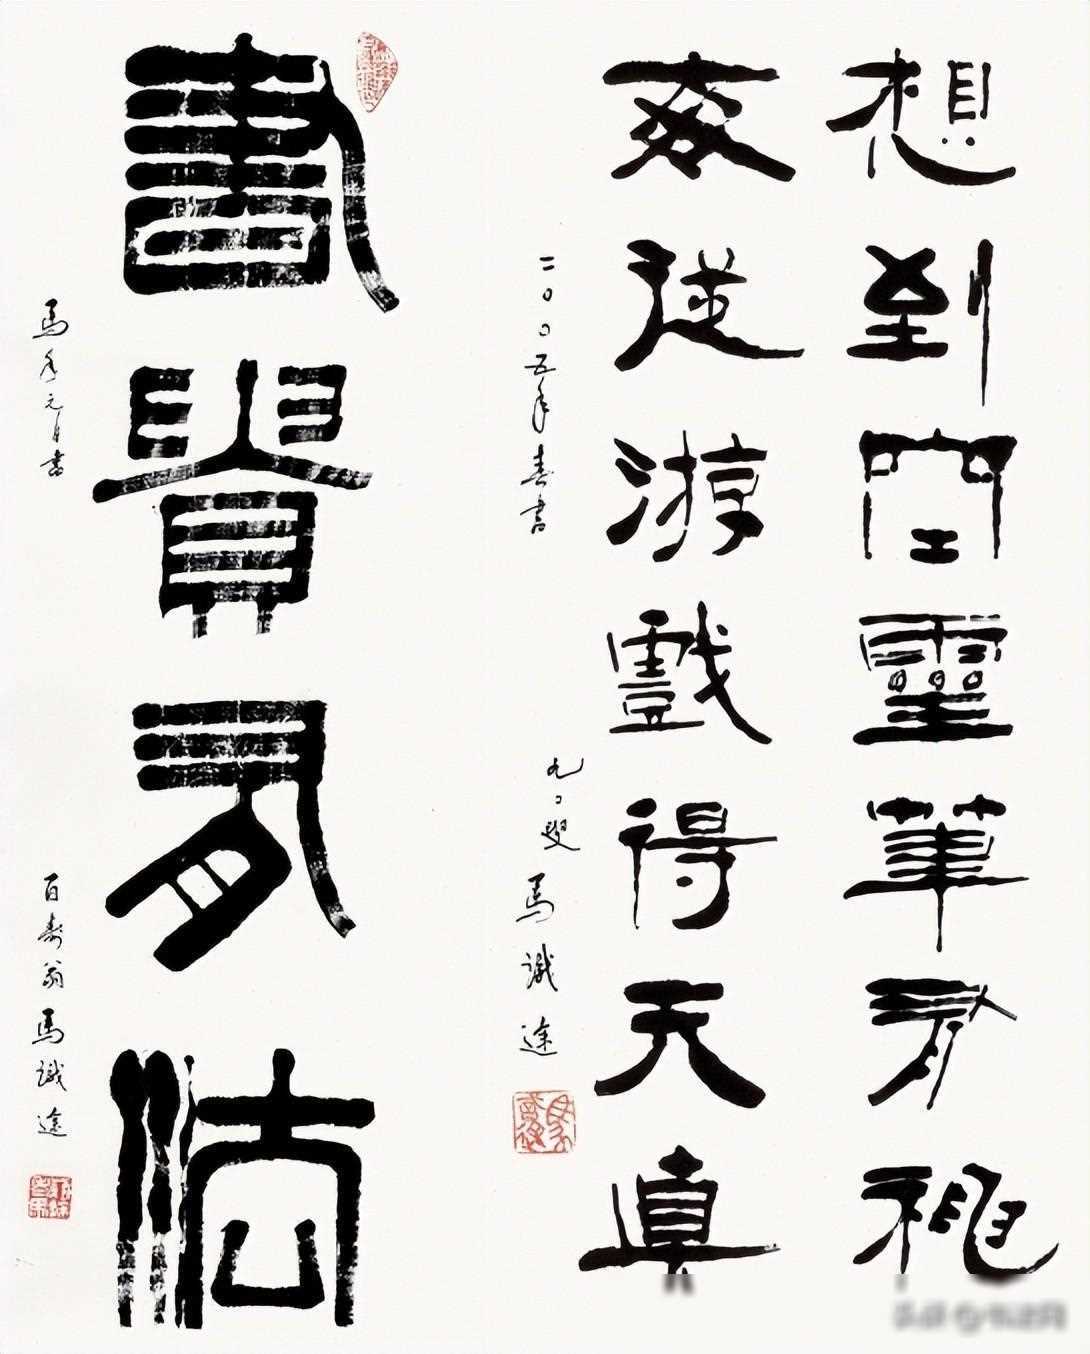 想到空靈筆有神
每從游戲得天真
二〇〇五年春書 九〇叟 馬識途
書貴有法
馬年元月書 百壽翁馬識途